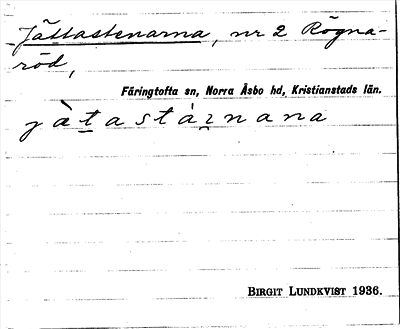 Jättastenarna, nr 2 Rögna-
röd,
Färingtofta sn, Norra Åsbo hd, Kristianstads län.
jàt̠astáɀ̯nana
BIRGIT LUNDKVIST 1936.